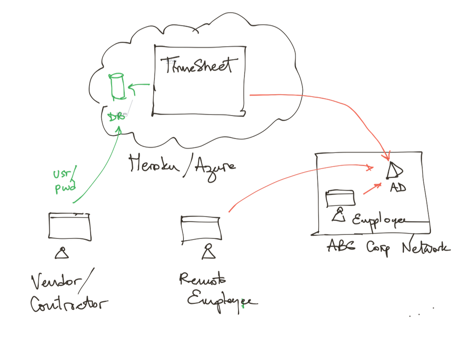 TimeSheet
DB
Heroku/Azure
usr/
pwd
AD
Employee
ABC Corp Network
Vendor/
Contractor
Remote
Employee